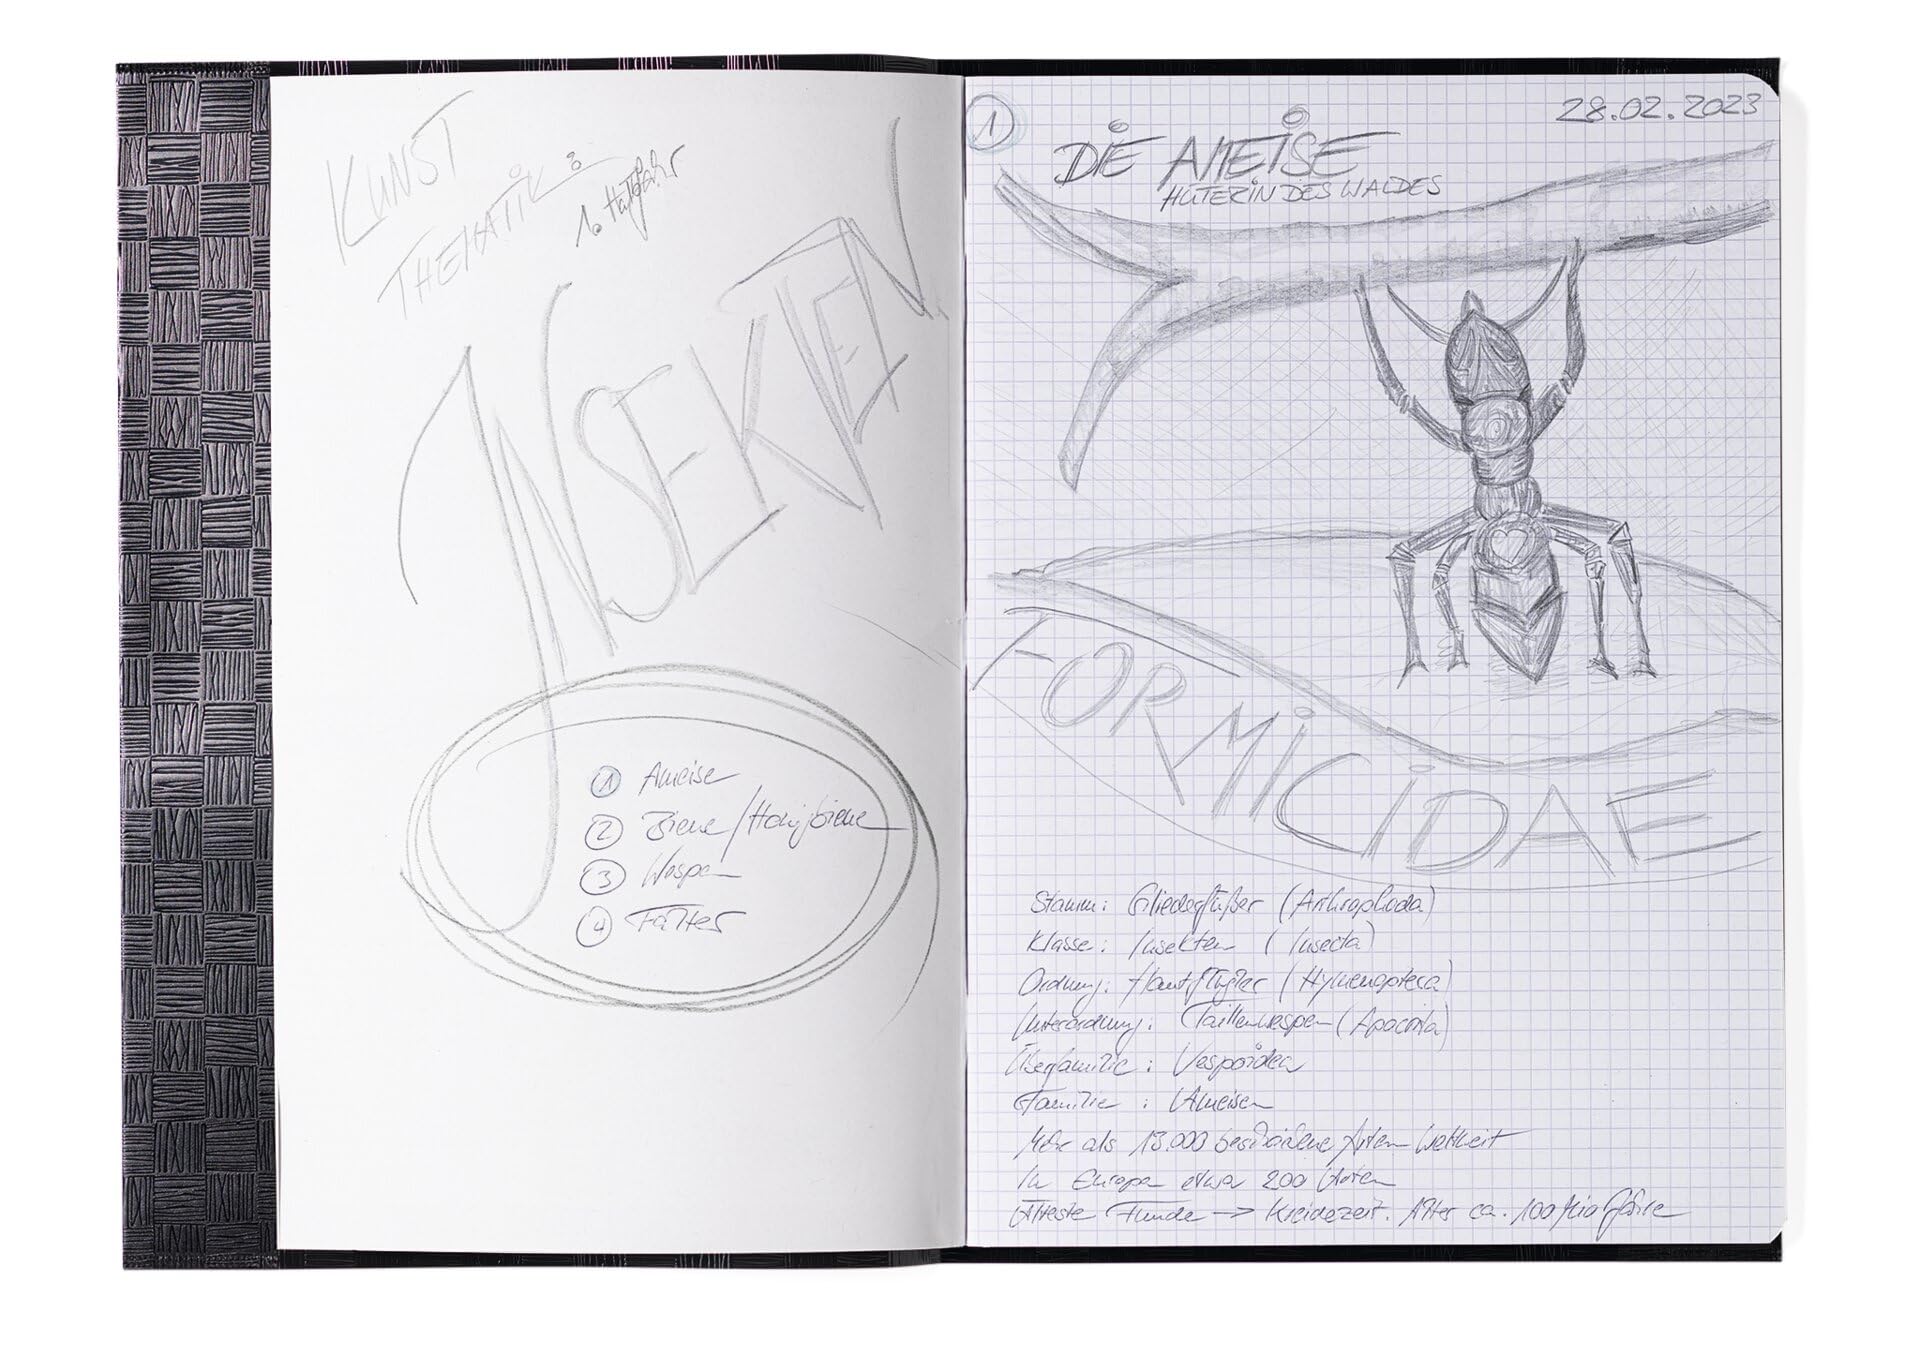 KUNST
THEMATIK:
1. Halbjahr
INSEKTEN
1 Ameise
2 Biene/Honigbiene
3 Wespen
4 Falter
1
28.02.2023
DIE AMEISE
HÜTERIN DES WALDES
FORMICIDAE
Stamm: Gliederfüßer (Arthrophoda)
Klasse: Insekten (Insecta)
Ordnung: Hautflügler (Hymenoptera)
Unterordnung: Taillenwespen (Apocrita)
Überfamilie: Vespoidea
Familie: Ameisen
Mehr als 13.000 beschriebene Arten weltweit
In Europa etwa 200 Arten
Älteste Funde -> Kreidezeit. Alter ca. 100 Mio Jahre